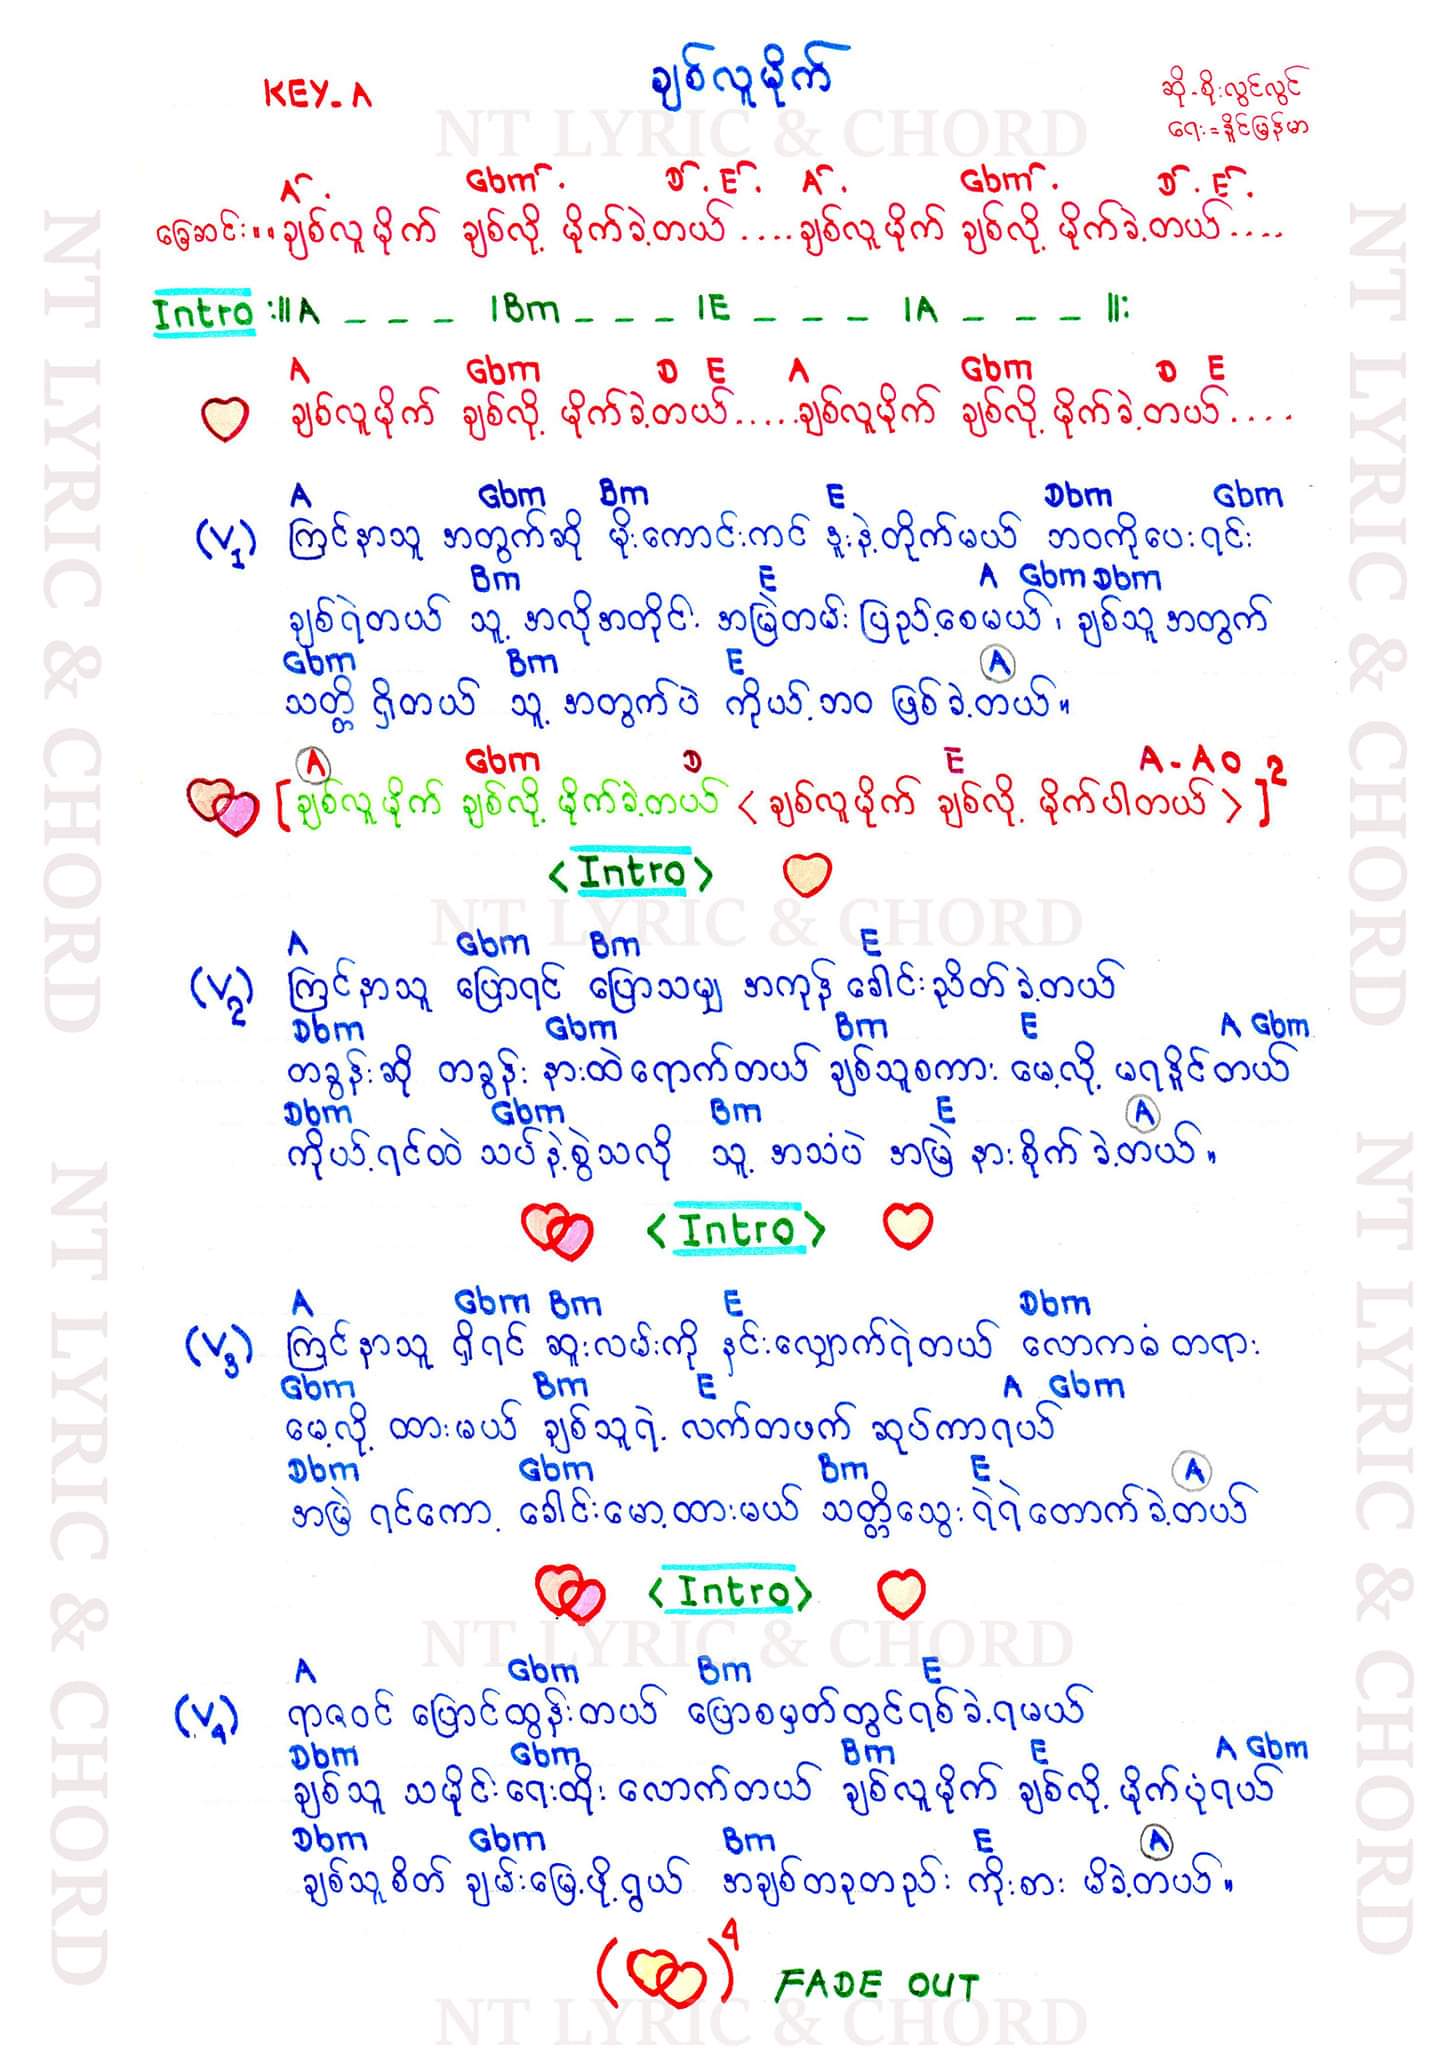 ချစ်လူမိုက်
KEY-A
ဆို-စိုးလွင်လွင်
ရေး=နိူင်မြန်မာ
NT LYRIC & CHORD
A . Gbm . D . E . A . Gbm . D . E .
ခြေဆင်း။ ။ ချစ်လူမိုက် ချစ်လို့ မိုက်ခဲ့တယ်....ချစ်လူမိုက် ချစ်လို့ မိုက်ခဲ့တယ်....
Intro :||A _ _ _ |Bm _ _ _ |E _ _ _ |A _ _ _ ||:
A Gbm D E A Gbm D E
ချစ်လူမိုက် ချစ်လို့ မိုက်ခဲ့တယ်.....ချစ်လူမိုက် ချစ်လို့ မိုက်ခဲ့တယ်....
A Gbm Bm E Dbm Gbm
(V1) ကြင်နာသူ အတွက်ဆို မိုးကောင်းကင် နူးနဲ့တိုက်မယ် ဘဝကိုပေးရင်း
Bm E A Gbm Dbm
ချစ်ရဲတယ် သူ့ အလိုအတိုင်း အမြဲတမ်း ပြည့်စေမယ်၊ ချစ်သူ အတွက်
Gbm Bm E A
သတ္တိ ရှိတယ် သူ့ အတွက်ပဲ ကိုယ့်ဘဝ ဖြစ်ခဲ့တယ်။
A Gbm D E A-A0
[ချစ်လူမိုက် ချစ်လို့ မိုက်ခဲ့တယ် <ချစ်လူမိုက် ချစ်လို့ မိုက်ပါတယ်>]2
<Intro>
NT LYRIC & CHORD
A Gbm Bm E
(V2) ကြင်နာသူ ပြောရင် ပြောသမျှ အကုန် ခေါင်းညိတ်ခဲ့တယ်
Dbm Gbm Bm E A Gbm
တခွန်းဆို တခွန်း နားထဲရောက်တယ် ချစ်သူစကား မေ့လို့ မရနိူင်တယ်
Dbm Gbm Bm E A
ကိုယ့်ရင်ထဲ သပ်နဲ့စွဲသလို သူ့ အသံပဲ အမြဲ နားစိုက်ခဲ့တယ်။
<Intro>
A Gbm Bm E Dbm
(V3) ကြင်နာသူ ရှိရင် ဆူးလမ်းကို နင်းလျှောက်ရဲတယ် လောကဓံတရား
Gbm Bm E A Gbm
မေ့လို့ ထားမယ် ချစ်သူရဲ့ လက်တဖက် ဆုပ်ကာရယ်
Dbm Gbm Bm E A
အမြဲ ရင်ကော့ ခေါင်းမော့ထားမယ် သတ္တိသွေး ရဲရဲတောက်ခဲ့တယ်
<Intro>
NT LYRIC & CHORD
A Gbm Bm E
(V4) ရာဇဝင် ပြောင်ထွန်းတယ် ပြောစမှတ်တွင်ရစ်ခဲ့ရမယ်
Dbm Gbm Bm E A Gbm
ချစ်သူ သမိုင်းရေးထိုး လောက်တယ် ချစ်လူမိုက် ချစ်လို့ မိုက်ပုံရယ်
Dbm Gbm Bm E A
ချစ်သူစိတ် ချမ်းမြေ့ဖို့ရွယ် အချစ်တခုတည်း ကိုးစား မိခဲ့တယ်။
( )4 FADE OUT
NT LYRIC & CHORD
NT LYRIC & CHORD
NT LYRIC & CHORD
NT LYRIC & CHORD
NT LYRIC & CHORD